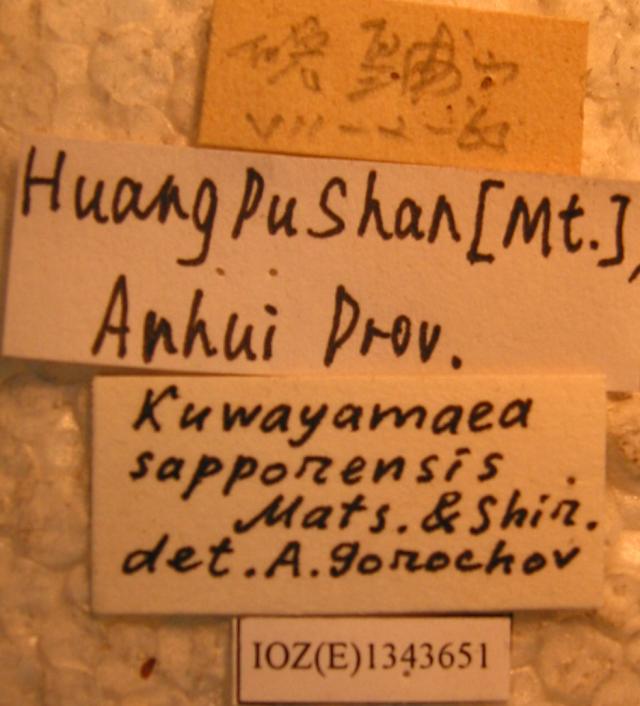 Huang Pu Shan [Mt.],
Anhui Prov.
Kuwayamaea
sapporensis
Mats. & Shir.
det. A. Gorochov
IOZ(E)1343651